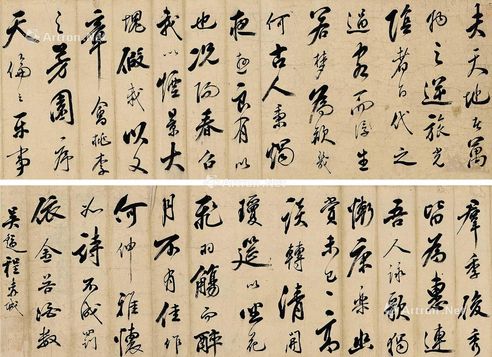 夫天地者萬
物之逆旅光
陰者百代之
過客而浮生
若夢為歡幾
何古人秉燭
夜遊良有以
也況陽春召
我以煙景大
塊假我以文
章會桃李
之芳園序
天倫之樂事
羣季俊秀
皆為惠連
吾人詠歌獨
慚康樂幽
賞未已高
談轉清開
瓊筵以坐花
飛羽觴而醉
月不有佳作
何伸雅懷
如詩不成罰
依金谷酒數